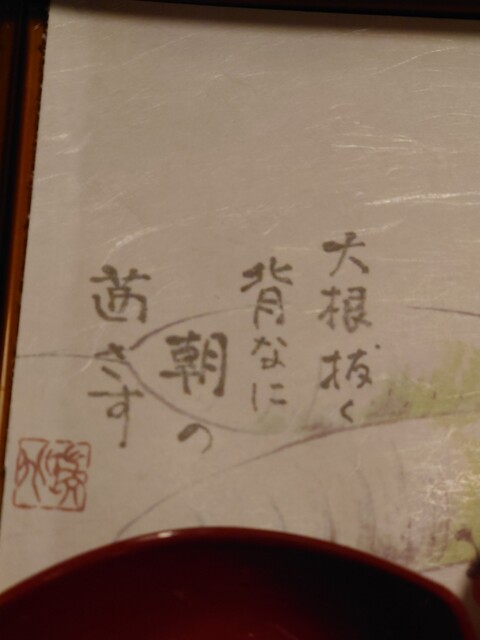 大根抜く
背なに
朝の
茜さす